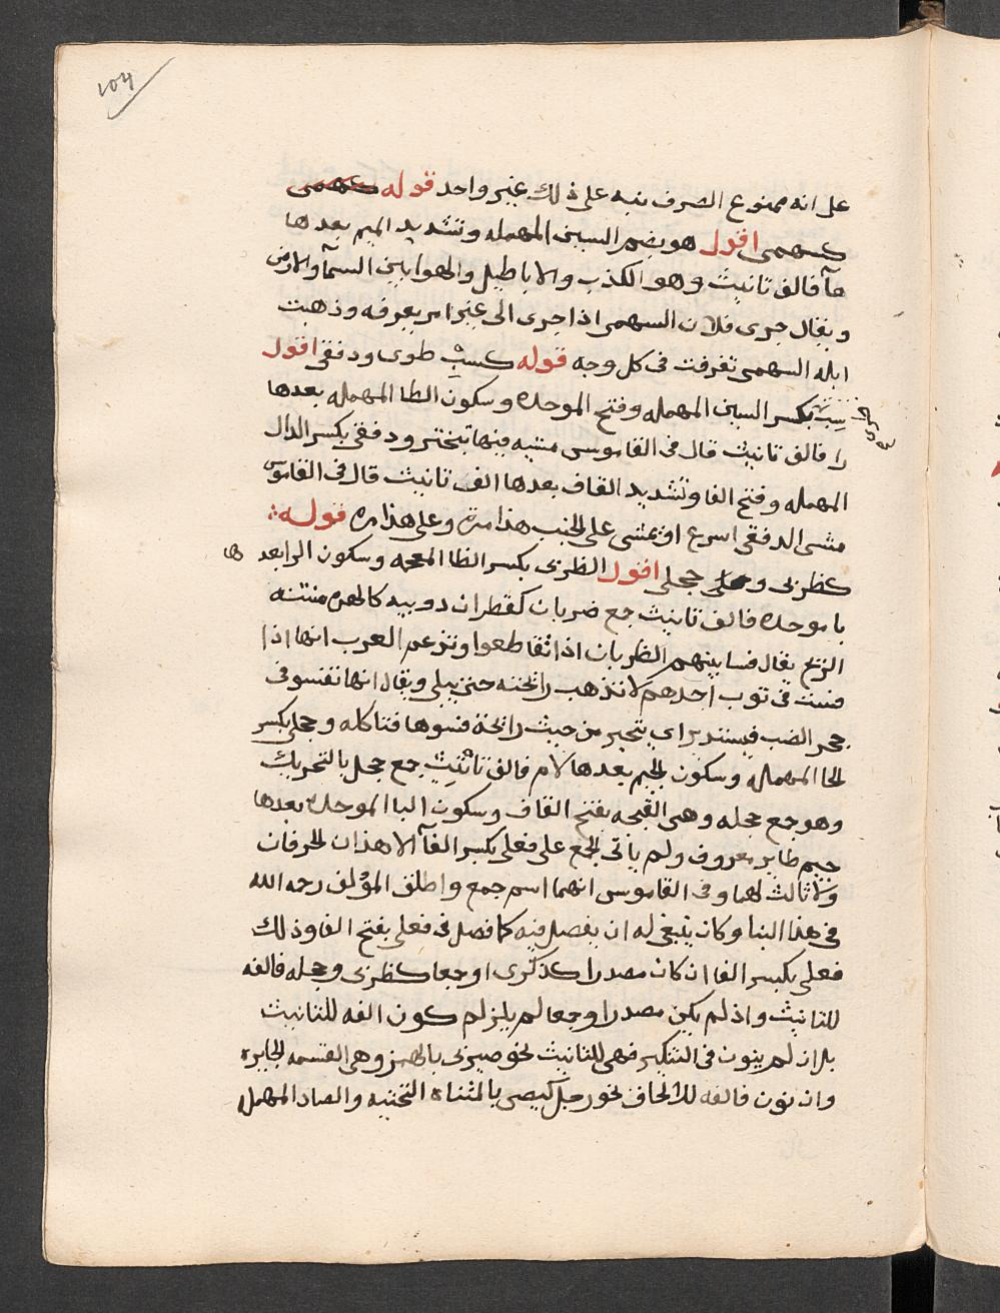 ١٥٣
على انه ممنوع الصرف نبه على ذلك غير واحد قوله
كسهمى اقول هو بضم السين المهمله وتشديد الميم بعدها
هآ فالف تانيث وهو الكذب والاباطيل والهوا بين السمآ والارض
ويقال جرى فلان السهمى اذا جرى الى غير امر يعرفه وذهبت
ابله السهمى تفرقت فى كل وجه قوله كسبطرى ودفقى اقول
سبطرى بكسر السين المهمله وفتح الموحده وسكون الطا المهمله بعدها
را فالف تانيث قال فى القاموس مشيه فيها تبختر ودفقى بكسر الدال
المهمله وفتح الفا وتشديد القاف بعدها الف تانيث قال فى القاموس
مشى الدفقى اسرع او تمشى على الجنب هذا مرة وعلى هذا مره قوله
كظربى وحجلى اقول الظربى بكسر الظا المعجمه وسكون الرا بعدها
با موحده فالف تانيث جمع ضربان كقطران دويبه كالهره منتنه
الريح يقال فسا بينهم الظربان اذا تقاطعوا وتزعم العرب انها اذا
فست فى ثوب احدهم لا تذهب رائحته حتى يبلى ويقال انها تفسو فى
جحر الضب فيستدير اى يتحير من خبث رائحة فسوها فتاكله وحجلى بكسر
الحا المهمله وسكون الجيم بعدها لام فالف تانيث جمع حجل بالتحريك
وهو جمع حجله وهى القبجه بفتح القاف وسكون البا الموحده بعدها
جيم طاير معروف ولم ياتى الجمع على فعلى بكسر الفآ الا هذان الحرفان
ولا ثالث لهما وفى القاموس انهما اسم جمع واطلق المؤلف رحمه الله
فى هذا البنا وكان ينبغى له ان يفصل فيه كما فصل فى فعلى بفتح الفا وذلك
فعلى بكسر الفا ان كان مصدرا كذكرى او جمعا كظربى وحجله فالفه
للتانيث واذ لم يكن مصدرا وجمعا لم يلزم كون الفه للتانيث
بل ان لم ينون فى التنكير فهى للتانيث نحو ضيزى بالهمز وهى القسمه الجايره
وان نون فالفه للالحاق نحو رجل كيصى بالمثناه التحتيه والصاد المهمله